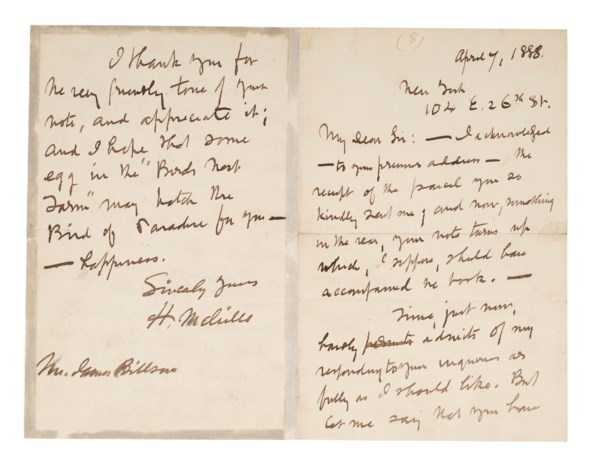 (8)
April 7, 1888.
New York
104 E. 26th St.
My dear Sir: — I acknowledged
— to your previous address — the
receipt of the parcel you so
kindly sent me; and now, something
in the rear, your note turns up
which, I suppose, should have
accompanied the book. —
Time, just now,
barely permits admits of my
responding to your inquiries as
fully as I should like. But
let me say that you have
I thank you for
the very friendly tone of your
note, and appreciate it;
and I hope that some
egg in the "Birds Nest
Farm" may hatch the
Bird of Paradise for you —
— happiness.
Sincerely Yours
H. Melville
Mr. James Billson